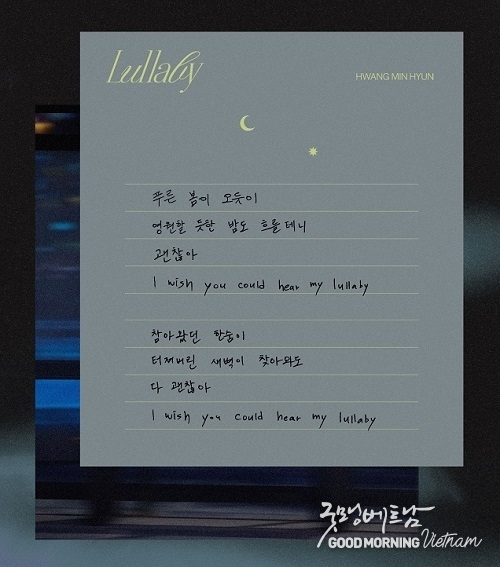 Lullaby
HWANG MIN HYUN
푸른 봄이 오듯이
영원할 듯한 밤도 흐를테니
괜찮아
I wish you could hear my lullaby
참아왔던 한숨이
터져버린 새벽이 찾아와도
다 괜찮아
I wish you could hear my lullaby
굿모닝베트남
GOOD MORNING Vietnam